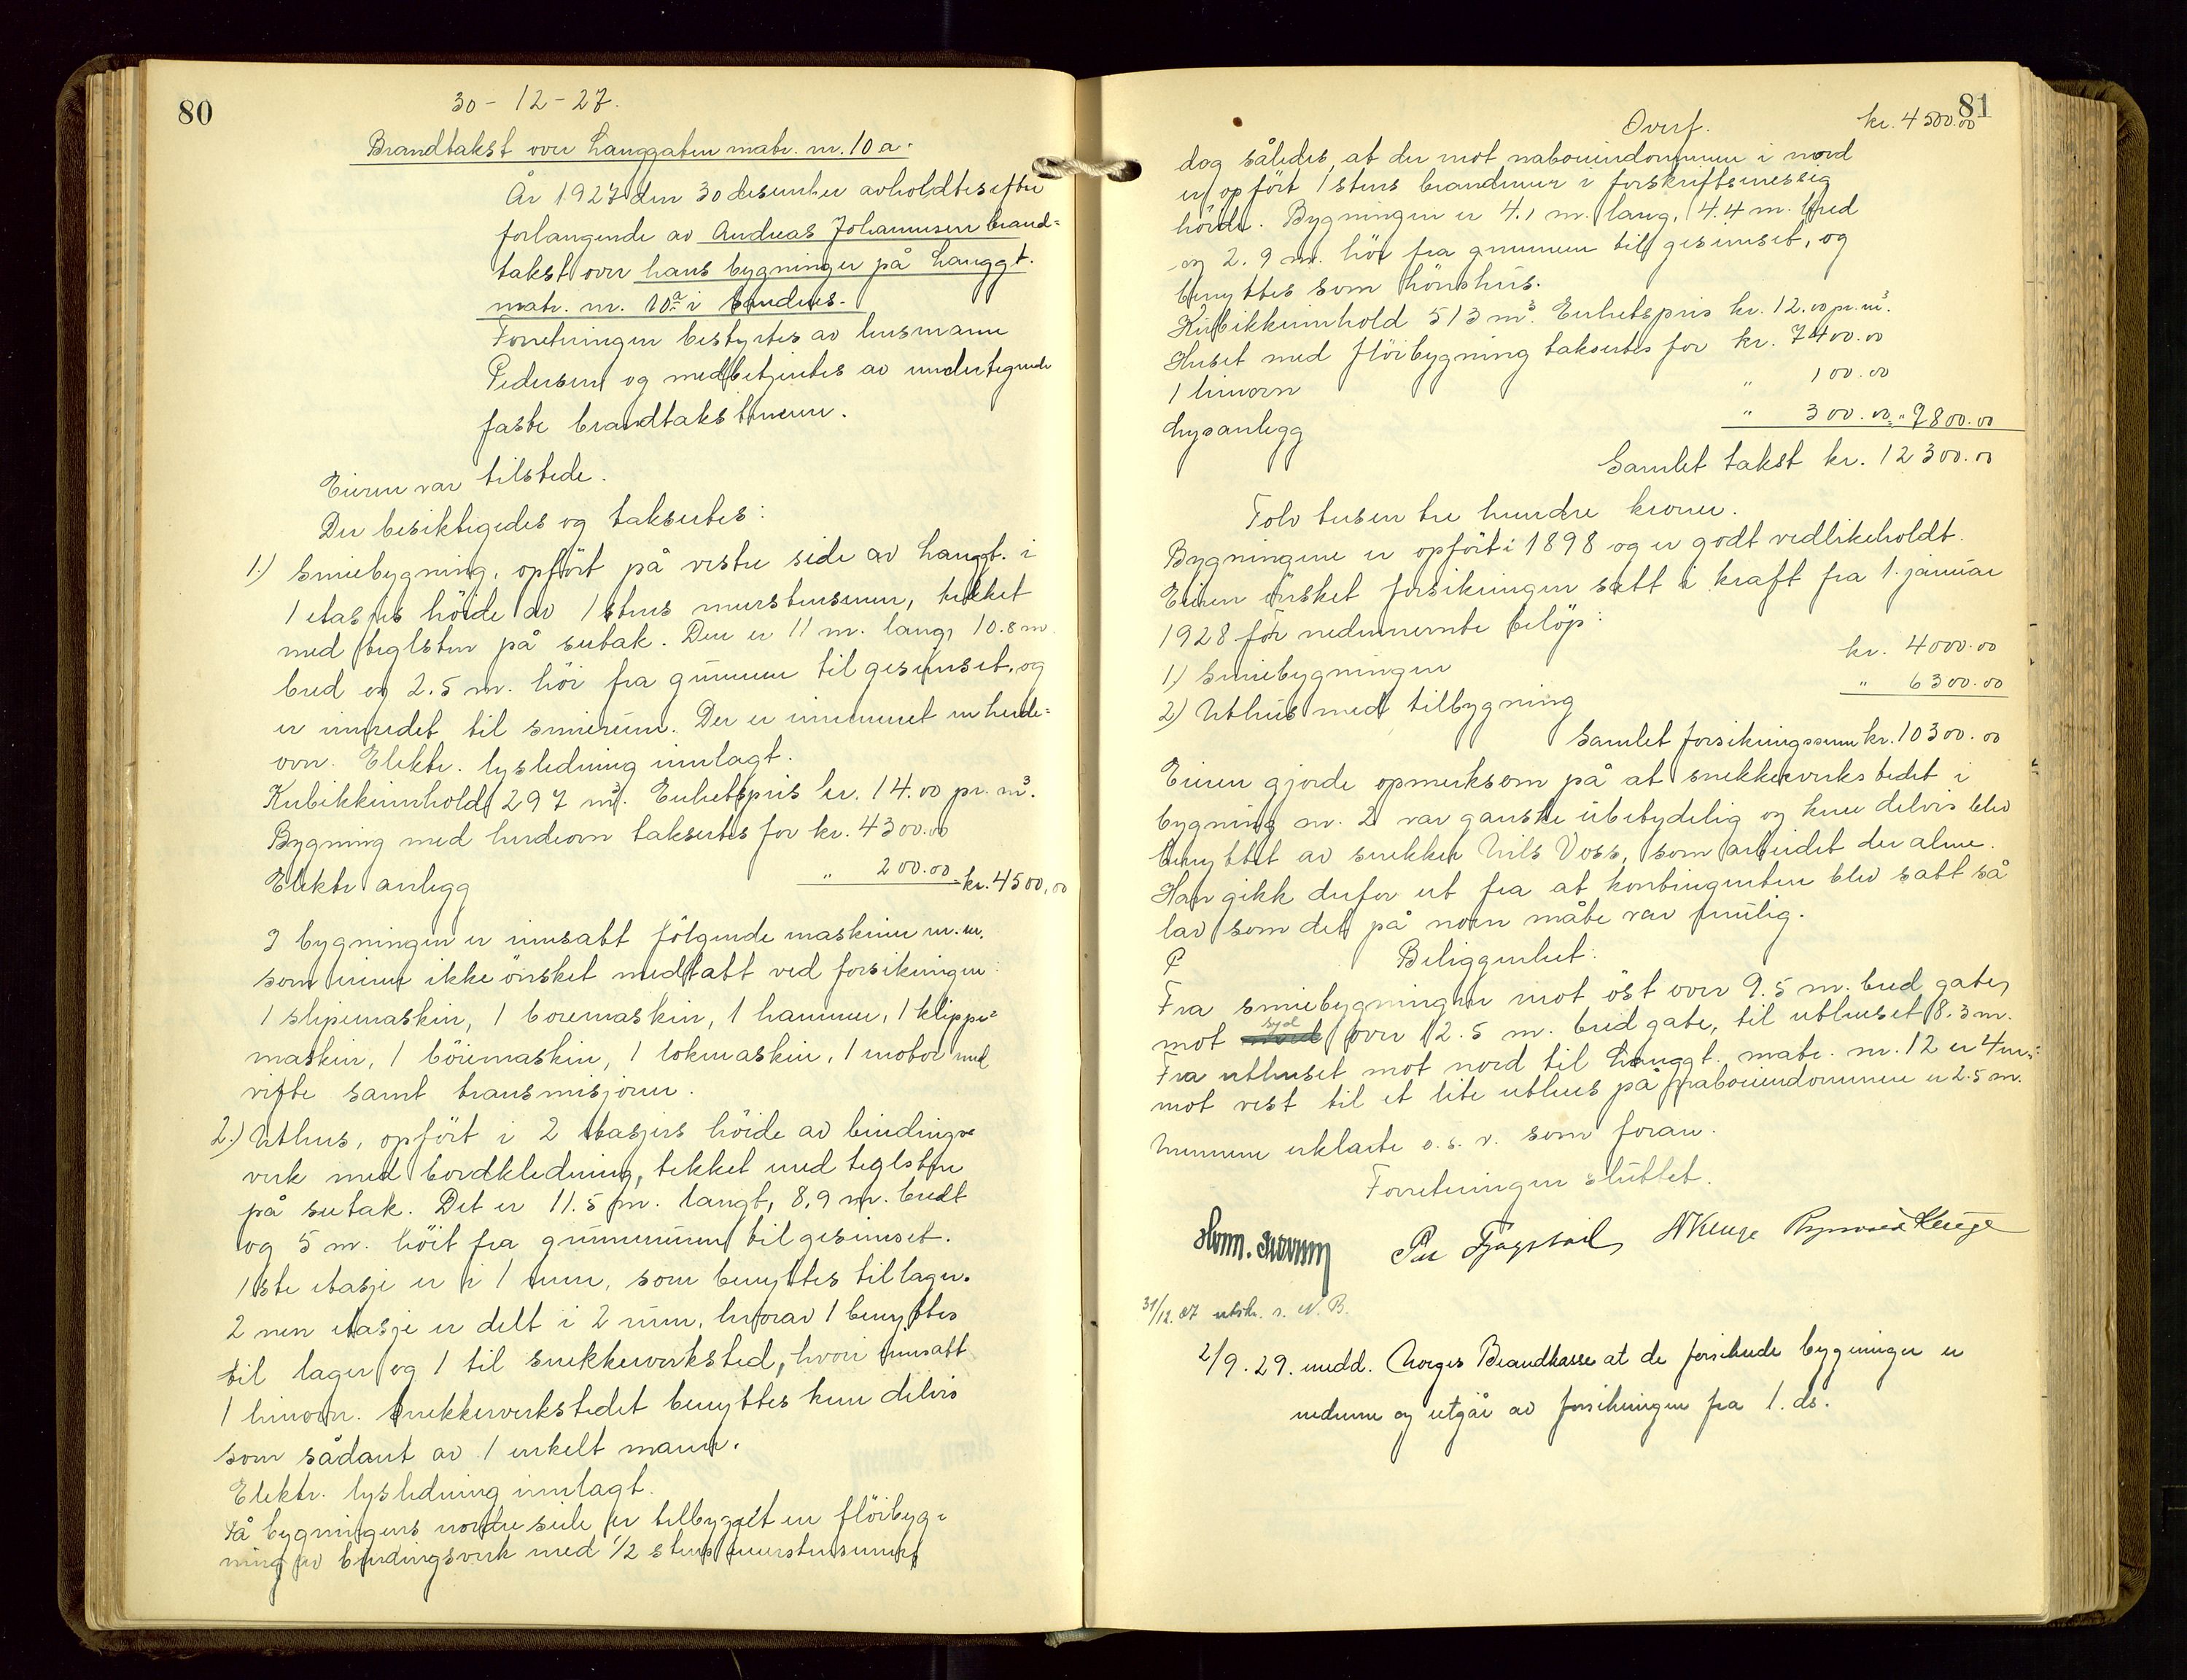 80
30 - 12 - 27.
Brandtakst over Langgaten matr. nr. 10 a.
År 1927 den 30 desember avholdtes efter
forlangende av Andreas Johannesen brand=
takst over hans bygninger på Langgt.
matr. nr. 10a i Sandnes.
Forretningen bestyrtes av lensmann
Pedersen og medbetjentes av undertegnede
faste brandtakstmenn.
Eieren var tilstede.
Der besiktigedes og taksertes:
1.) Smiebygning, opfört på vestre side av Langgt. i
1 etasjes höide av 1 stens murstensmur, tekket
med teglsten på sutak. Den er 11 m. lang, 10.8 m.
bred og 2.5 m. höi fra grunnen til gesimset, og
er innredet til smierum. Der er innmuret en herde=
ovn. Elektr. lysledning innlagt.
Kubikkinnhold 297 m³. Enhetspris kr. 14.00 pr. m³.
Bygning med herdeovn taksertes for kr. 4300.00
Elektr anlegg " 200.00 kr. 4500.00
I bygningen er innsatt fölgende maskiner m.m.
som eieren ikke önsket medtatt ved forsikringen:
1 slipemaskin, 1 boremaskin, 1 hammer, 1 klippe=
maskin, 1 böiemaskin, 1 lokmaskin, 1 motor med
vifte samt transmisjoner.
2.) Uthus, opfört i 2 etasjers höide av bindings=
verk med bordkledning, tekket med teglsten
på sutak. Det er 11.5 m. langt, 8.9 m. bredt
og 5 m. höit fra grunnmuren til gesimset.
1ste etasje er i 1 rum, som benyttes til lager.
2 nen etasje er delt i 2 rum, hvorav 1 benyttes
til lager og 1 til snekkerverksted, hvori innsatt
1 limovn. Snekkerverkstedet benyttes kun delvis
som sådant av 1 enkelt mann.
Elektr. lysledning innlagt.
På bygningens nordre side er tilbygget en flöibyg=
ning av bindingsverk med 1/2 stens murstensmurer
81
Overf. kr. 4500.00
dog således, at der mot naboeiendommen i nord
er opfört 1 stens brandmur i forskriftsmessig
höide. Bygningen er 4.1 m. lang, 4.4 m. bred
og 2.9 m. höi fra grunnen til gesimset, og
benyttes som hönsehus.
Kubikkinnhold 513 m³. Enhetspris kr. 12.00 pr. m³.
Huset med flöibygning taksertes for kr. 7400.00
1 limovn " 100.00
Lysanlegg " 300.00 " 7800.00
Samlet takst kr. 12300.00
Tolv tusen tre hundre kroner.
Bygningene er opfört i 1898 og er godt vedlikeholdt.
Eieren önsket forsikringen satt i kraft fra 1. januar
1928 for nedennevnte belöp:
1) Smiebygningen kr. 4000.00
2) Uthus med tilbygning " 6300.00
Samlet forsikringssum kr. 10300.00
Eieren gjorde opmerksom på at snekkerverkstedet i
bygning nr. 2 var ganske ubetydelig og kun delvis blev
benyttet av snekker Nils Voss, som arbeidet der alene.
Han gikk derfor ut fra at kontingenten blev satt så
lav som det på noen måte var mulig.
Beliggenhet:
Fra smiebygningen mot öst over 9.5 m. bred gate,
mot syd over 12.5 m. bred gate, til uthuset 8.3 m.
Fra uthuset mot nord til Langgt. matr. nr. 12 er 4 m.,
mot vest til et lite uthus på naboeiendommen er 2.5 m.
Mennene erklærte o.s.v. som foran.
Forretningen sluttet.
Per Fjogstad N Kluge
31/12.27 utskr. s. N. B.
2/9.29. medd. Norges Brandkasse at de forsikrede bygninger er
nedrevne og utgår av forsikringen fra 1. ds.